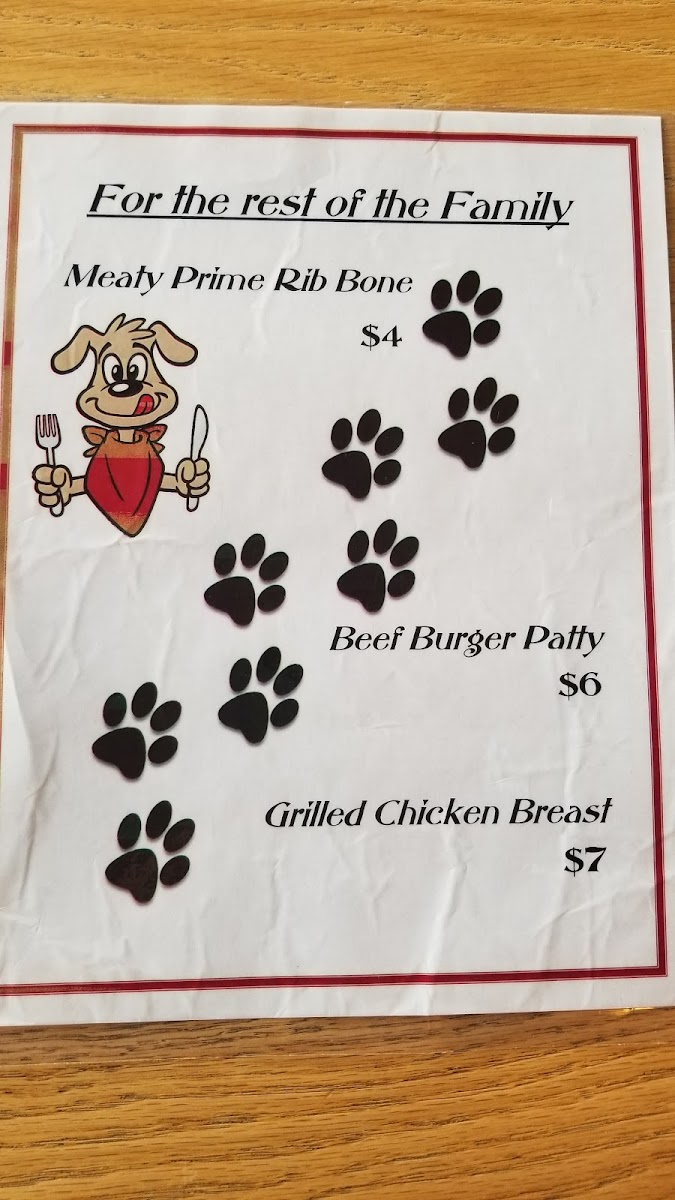 For the rest of the Family
Meaty Prime Rib Bone
$4
Beef Burger Patty
$6
Grilled Chicken Breast
$7